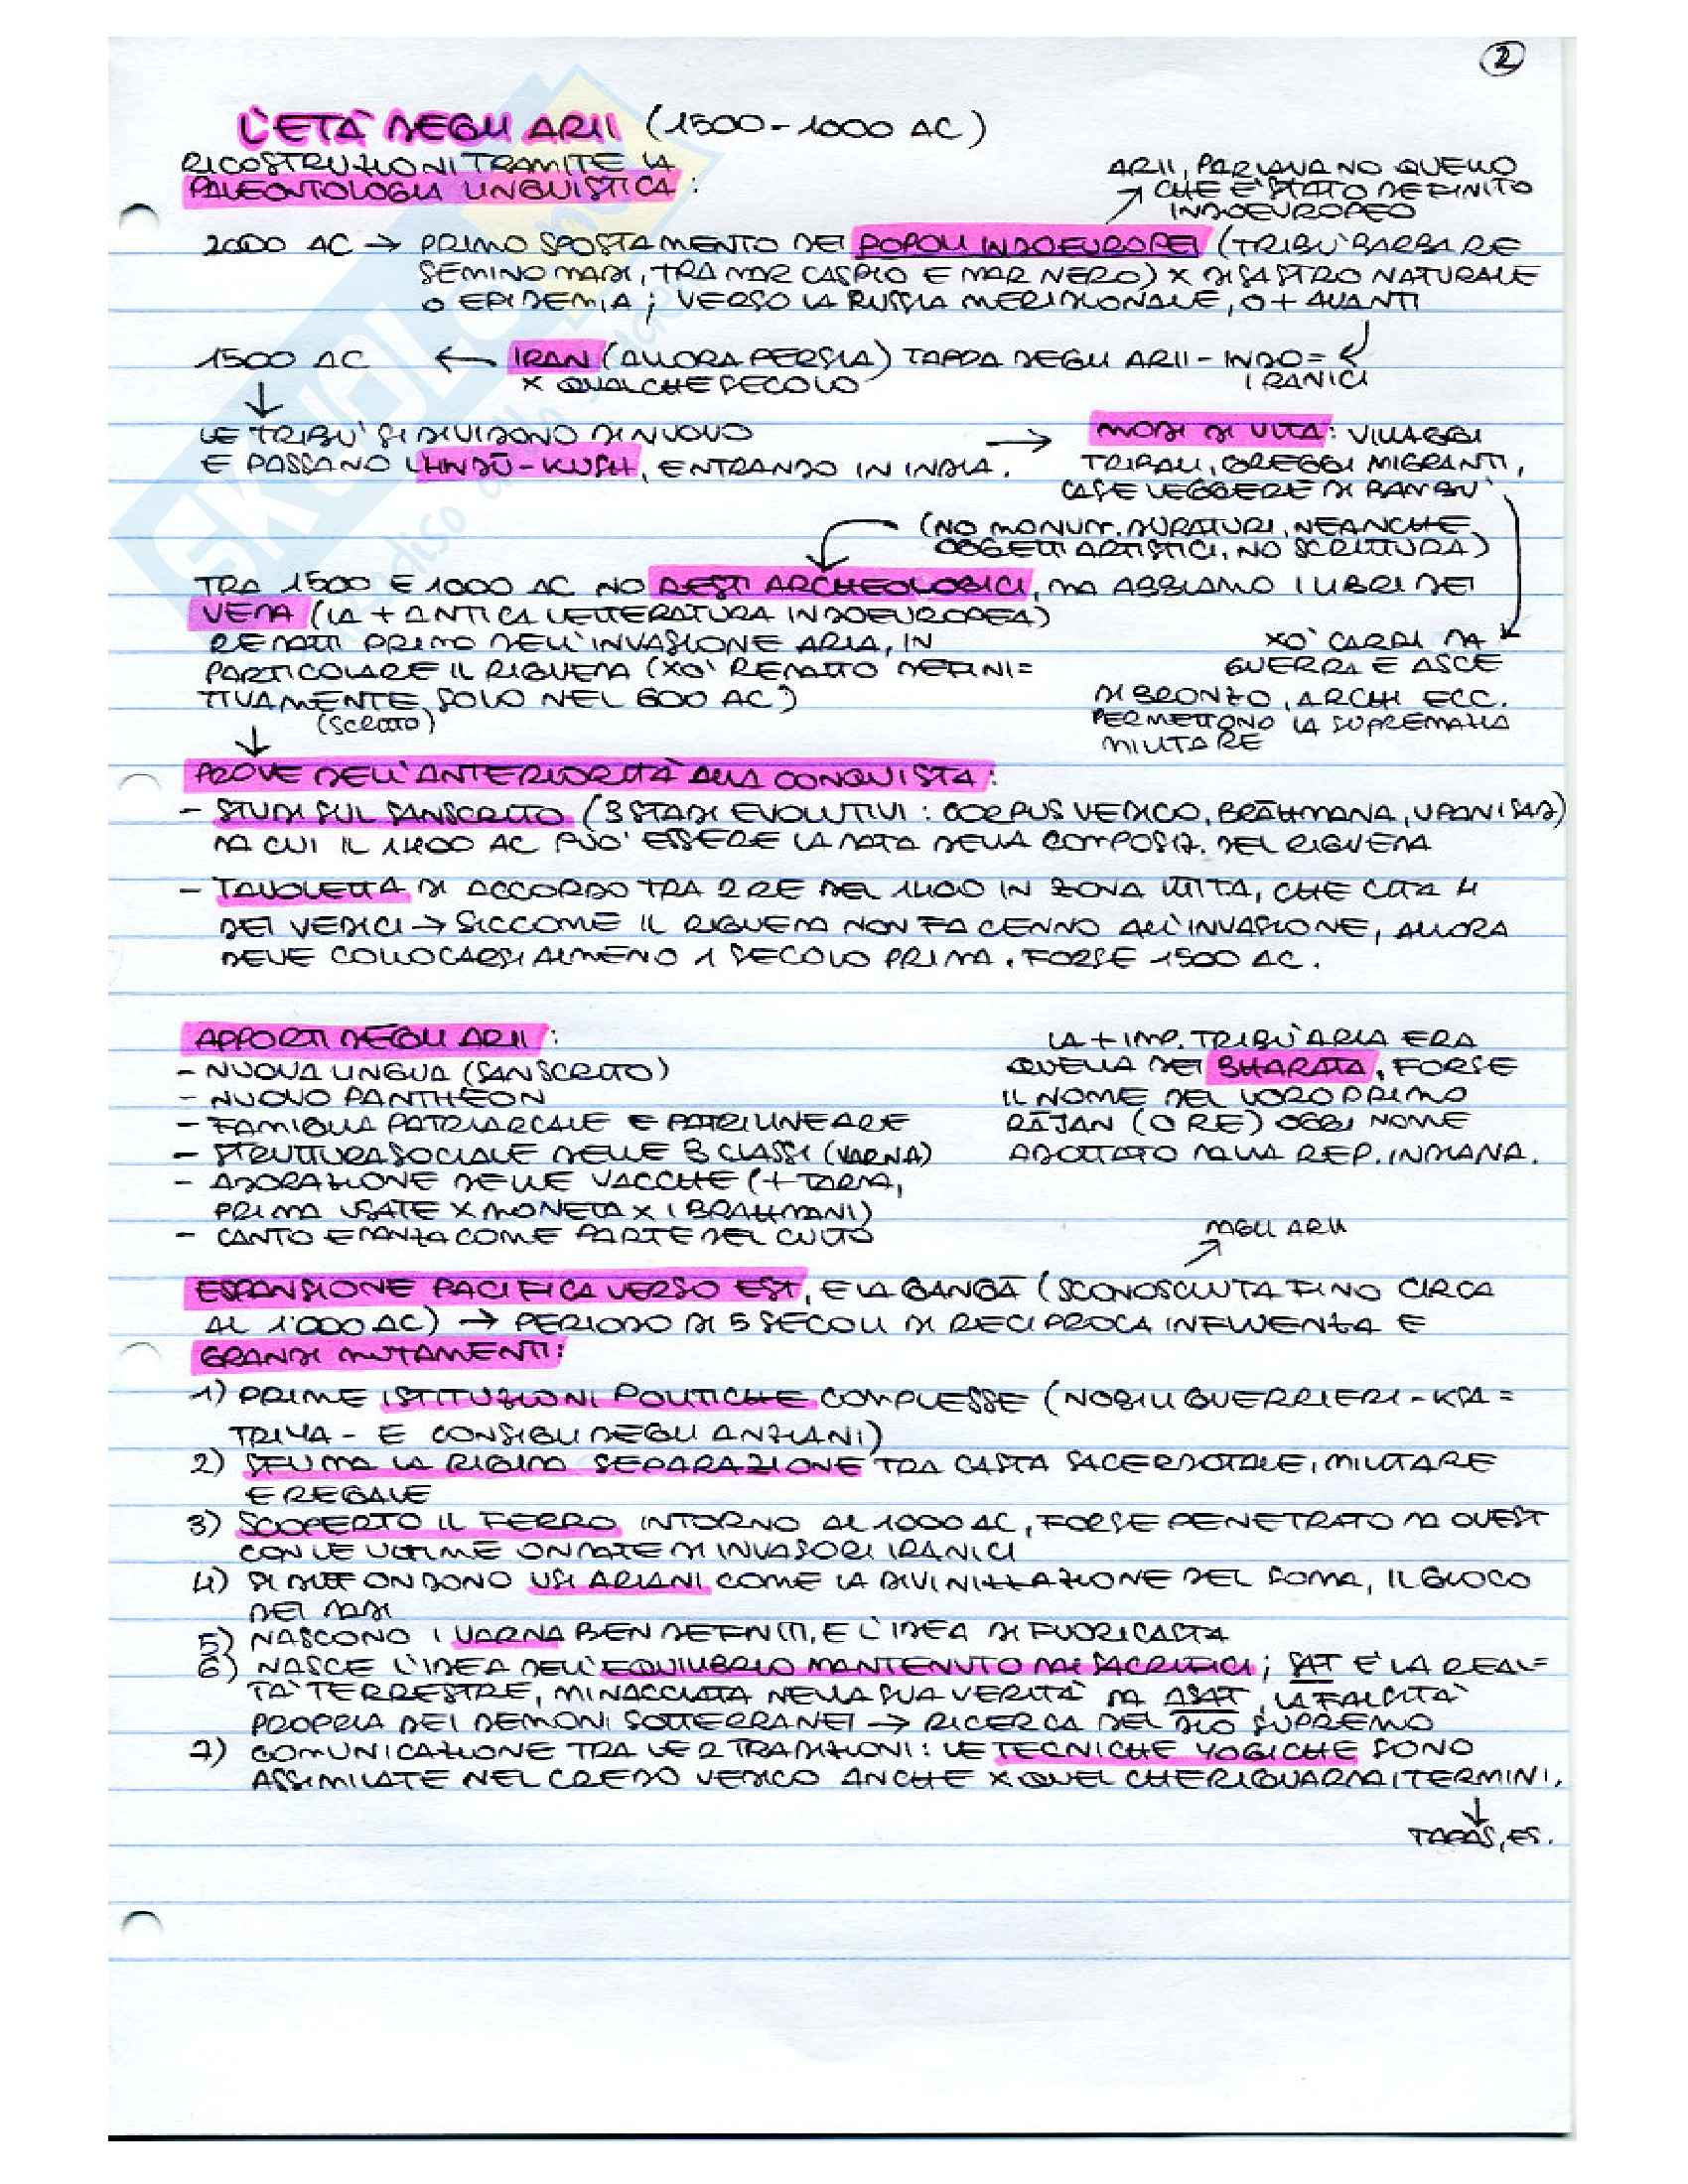 2
L'ETÀ DEGLI ARII (1500-1000 AC)
RICOSTRUZIONI TRAMITE LA
PALEONTOLOGIA LINGUISTICA:
ARII, PARLAVANO QUELLO
CHE E' STATO DEFINITO
INDOEUROPEO
2000 AC → PRIMO SPOSTAMENTO DEI POPOLI INDOEUROPEI (TRIBU' BARBARE
SEMINOMADI, TRA MAR CASPIO E MAR NERO) X DISASTRO NATURALE
O EPIDEMIA; VERSO LA RUSSIA MERIDIONALE, O + AVANTI
1500 AC ← IRAN (ALLORA PERSIA) TAPPA DEGLI ARII-INDO=
IRANICI
X QUALCHE SECOLO
LE TRIBU' SI DIVIDONO DI NUOVO
E PASSANO L'HINDŪ-KUSH, ENTRANDO IN INDIA.
→ MODI DI VITA: VILLAGGI
TRIBALI, GREGGI MIGRANTI,
CASE LEGGERE DI BAMBU'
(NO MONUM. DURATURI, NEANCHE
OGGETTI ARTISTICI, NO SCRITTURA)
TRA 1500 E 1000 AC NO RESTI ARCHEOLOGICI, MA ABBIAMO I LIBRI DEI
VEDA (LA + ANTICA LETTERATURA INDOEUROPEA)
REDATTI PRIMO DELL'INVASIONE ARIA, IN
PARTICOLARE IL RIGVEDA (XO' REDATTO DEFINI=
TIVAMENTE SOLO NEL 600 AC)
(SCRITTO)
XO' CARRI DA
GUERRA E ASCE
DI BRONZO, ARCHI ECC.
PERMETTONO LA SUPREMAZIA
MILITARE
PROVE DELL'ANTERIORITÀ ALLA CONQUISTA:
- STUDI SUL SANSCRITO (3 STADI EVOLUTIVI: CORPUS VEDICO, BRĀHMANA, UPANISAD)
DA CUI IL 1400 AC PUO' ESSERE LA DATA DELLA COMPOSIZ. DEL RIGVEDA
- TAVOLETTA DI ACCORDO TRA 2 RE DEL 1400 IN ZONA ITTITA, CHE CITA 4
DEI VEDICI → SICCOME IL RIGVEDA NON FA CENNO ALL'INVASIONE, ALLORA
DEVE COLLOCARSI ALMENO 1 SECOLO PRIMA. FORSE 1500 AC.
APPORTI DEGLI ARII:
- NUOVA LINGUA (SANSCRITO)
- NUOVO PANTHEON
- FAMIGLIA PATRIARCALE E PATRILINEARE
- STRUTTURA SOCIALE DELLE 3 CLASSI (VARNA)
- ADORAZIONE DELLE VACCHE (+ TARDA,
PRIMA USATE X MONETA X I BRAHMANI)
- CANTO E DANZA COME PARTE DEL CULTO
LA + IMP. TRIBÙ ARIA ERA
QUELLA DEI BHARATA, FORSE
IL NOME DEL LORO PRIMO
RĀJAN (O RE) OGGI NOME
ADOTTATO DALLA REP. INDIANA.
DAGLI ARII
ESPANSIONE PACIFICA VERSO EST, E LA GANGĀ (SCONOSCIUTA FINO CIRCA
AL 1000 AC) → PERIODO DI 5 SECOLI DI RECIPROCA INFLUENZA E
GRANDI MUTAMENTI:
1) PRIME ISTITUZIONI POLITICHE COMPLESSE (NOBILI GUERRIERI - KSA=
TRIYA - E CONSIGLI DEGLI ANZIANI)
2) SFUMA LA RIGIDA SEPARAZIONE TRA CASTA SACERDOTALE, MILITARE
E REGALE
3) SCOPERTO IL FERRO INTORNO AL 1000 AC, FORSE PENETRATO DA OVEST
CON LE ULTIME ONDATE DI INVASORI IRANICI
4) SI DIFFONDONO USI ARIANI COME LA DIVINIZZAZIONE DEL SOMA, IL GIOCO
DEI DADI
5) NASCONO I VARNA BEN DEFINITI, E L'IDEA DI FUORICASTA
6) NASCE L'IDEA DELL'EQUILIBRIO MANTENUTO DAI SACRIFICI; SAT E' LA REAL=
TA' TERRESTRE, MINACCIATA NELLA SUA VERITÀ DA ASAT, LA FALSITÀ
PROPRIA DEI DEMONI SOTTERRANEI → RICERCA DEL DIO SUPREMO
7) COMUNICAZIONE TRA LE 2 TRADIZIONI: LE TECNICHE YOGICHE SONO
ASSIMILATE NEL CREDO VEDICO ANCHE X QUEL CHE RIGUARDA I TERMINI.
TAPAS, ES.